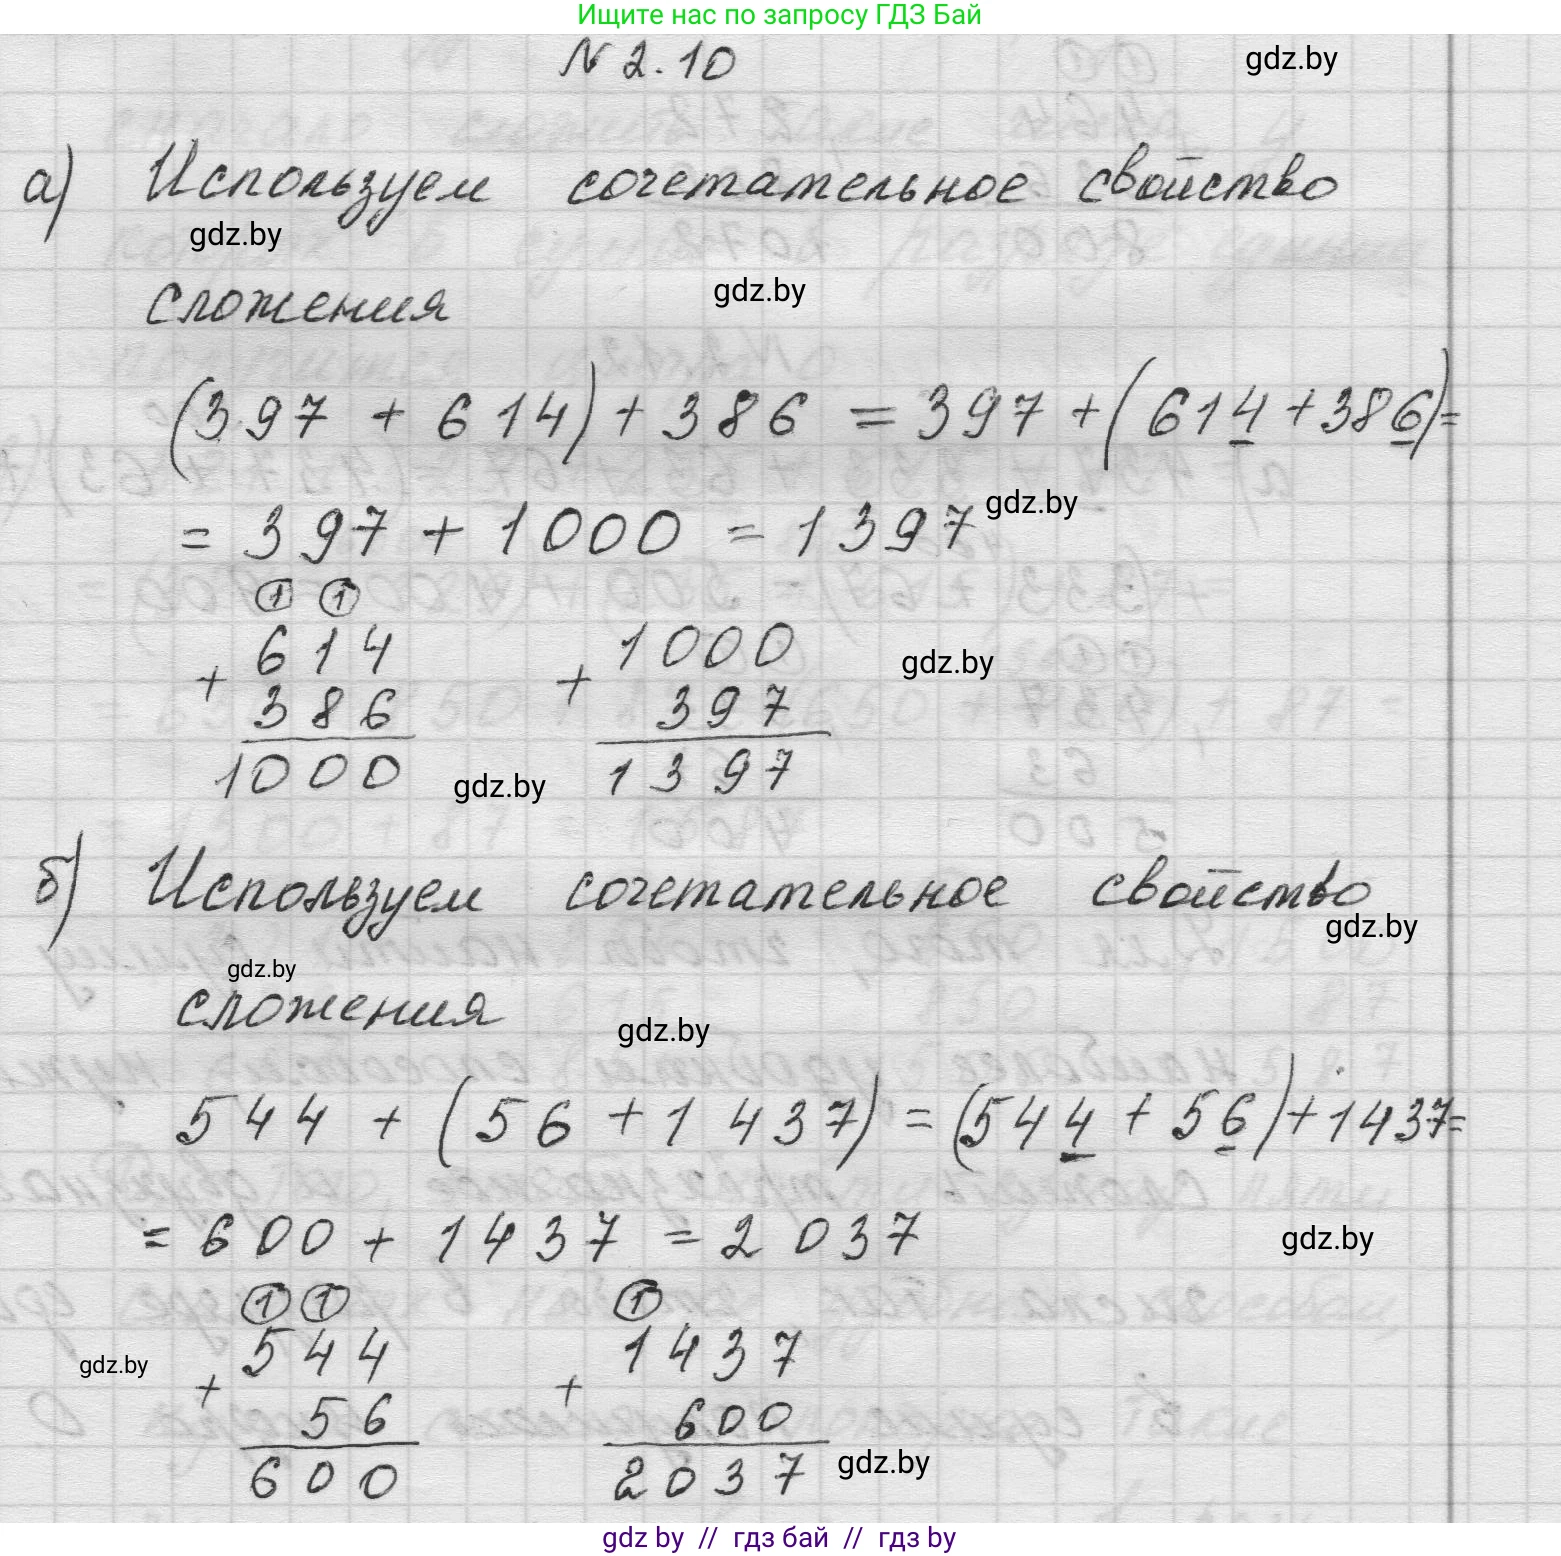 Ищите нас по запросу ГДЗ Бай
N 2.10
gdz.by
а) Используем сочетательное свойство
gdz.by
gdz.by
сложения
(397 + 614) + 386 = 397 + (614 + 386) =
= 397 + 1000 = 1397
gdz.by
1 1
614
+
386
1000
1000
+
397
1397
gdz.by
gdz.by
б) Используем сочетательное свойство
gdz.by
gdz.by
сложения
gdz.by
544 + (56 + 1 437) = (544 + 56) + 1437 =
= 600 + 1437 = 2 037
gdz.by
1 1
544
+
56
600
gdz.by
1
1437
+
600
2037
gdz.by
gdz by // гдз бай // гдз by